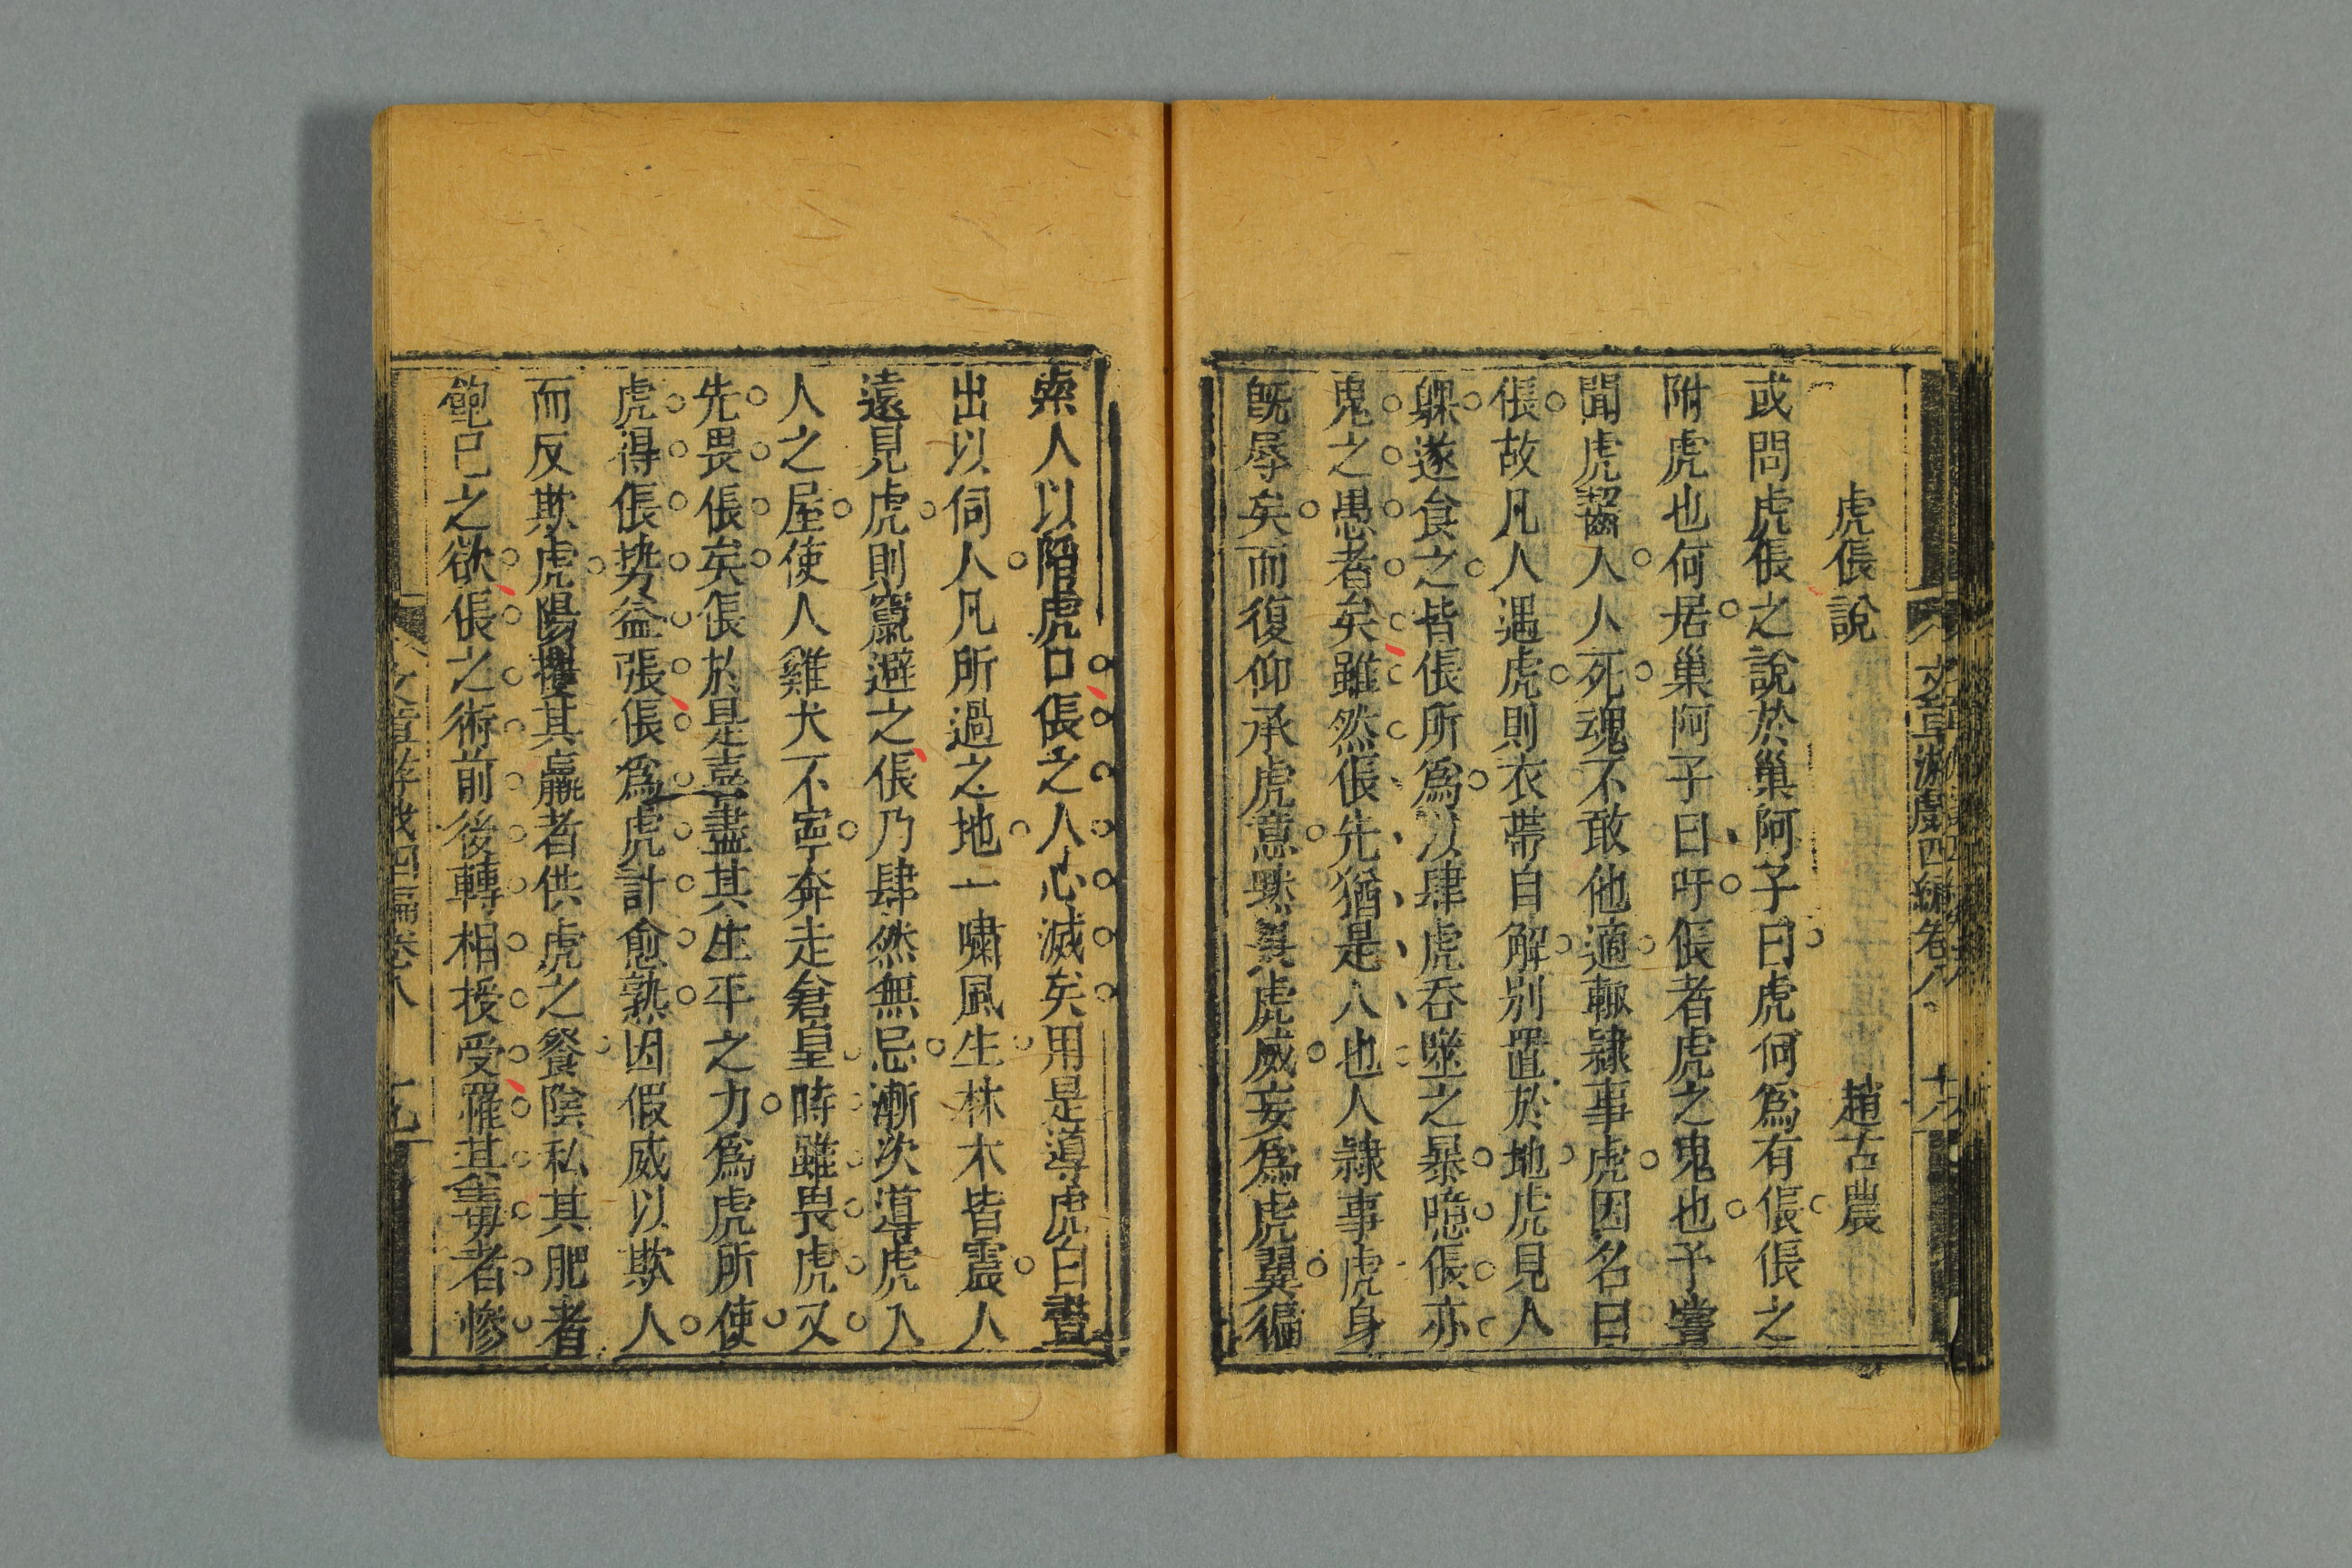 虎倀說　趙古農
或問虎倀之說於巢阿子曰虎何為有倀倀之
附虎也何居巢阿子曰吁倀者虎之鬼也予嘗
聞虎齧人人死魂不敢他適輒隸事虎因名曰
倀故凡人遇虎則衣帶自解別置於地虎見人
躶遂食之皆倀所為以肆虎吞噬之暴噫倀亦
鬼之愚者矣雖然倀先猶是人也人隸事虎身
旣辱矣而復仰承虎意煦虎威妄為虎翼徧
索人以陷虎口倀之人心滅矣用是導虎白晝
出以伺人凡所過之地一嘯風生林木皆震人
遠見虎則竄避之倀乃肆然無忌漸次導虎入
人之屋使人雞犬不寧奔走倉皇時雖畏虎又
先畏倀矣倀於是喜盡其生平之力為虎所使
虎得倀勢益張倀為虎計愈熟因假威以欺人
而反欺虎陽攫其羸者供虎之餐陰私其肥者
飽已之欲倀之術前後轉相授受罹其毒者慘
文章游戲四編卷八
十八
文章游戲四編卷八
十九